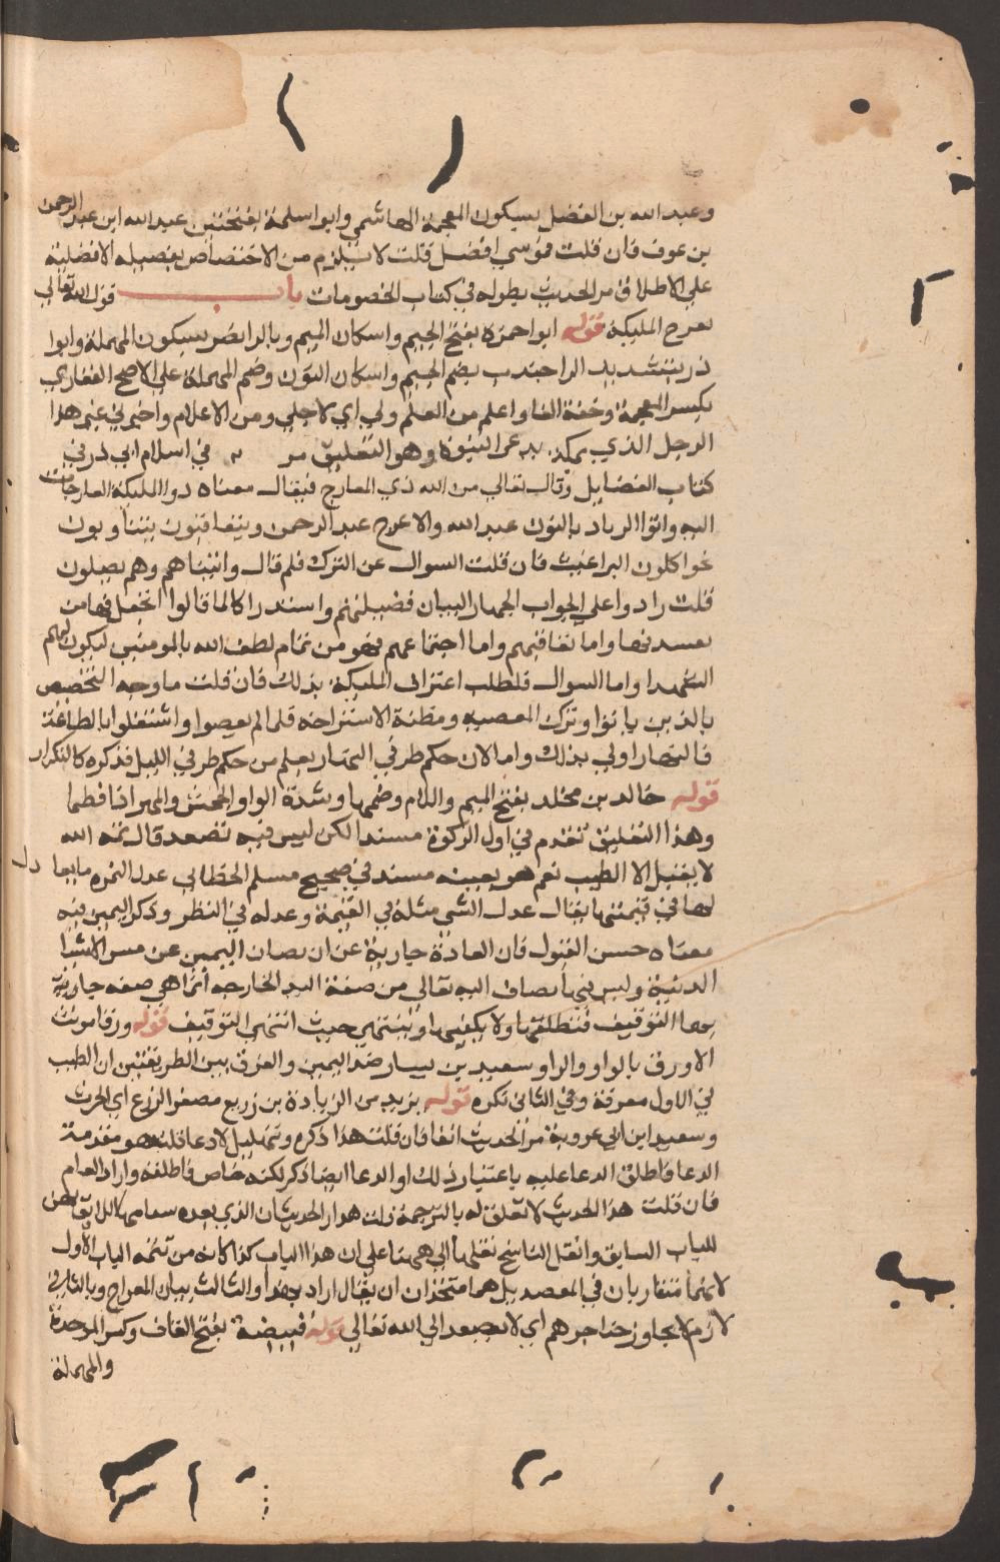 وعبد الله بن الفضل بسيكون المعجمة الهاشمي وابو اسلمة بفتحتين عبد الله ابن عبد الرحمن
بن عوف فان قلت موسي افضل قلت لا يلزم من الاختصاص بفضيله الافضلية
علي الاطلاق مر الحديث بطوله في كتاب الخصومات باب قول الله تعالي
تعرج المليكة قوله ابو احمزه بفتح الجيم واسكان الميم وبالرا نصر بسيكون المهملة وابوا
ذر بتشديد الرا جندب بضم الجيم واسكان النون وضم المهملة علي الاصح الغفاري
بكسر المعجمة وخفة الفا واعلم من العلم ولي اي لاجلي ومن الاعلام واخبرني خبر هذا
الرجل الذي بمكة يدعي النبوة وهو التعليق مر في اسلام ابي ذر في
كتاب الفضايل وقال تعالي من الله ذي المعارج فيقال معناه ذو المليكة العارجات
اليه وابوا الزناد بالنون عبد الله والاعرج عبد الرحمن ويتعاقبون يتناوبون
نحو اكلوني البراغيث فان قلت السوال عن الترك فلم قال واتيناهم وهم يصلون
قلت زادوا علي الجواب اظهارا لبيان فضيلتهم واستدراكا لما قالوا اتجعل فيها من
يفسد فيها واما تعاقبهم واما اجتماعهم فهو من تمام لطف الله بالمومنين ليكون لهم
الشهدا واما السوال فلطلب اعتراف المليكة بذلك فان قلت ما وجه التخصيص
بالذين باتوا وترك المعصيه ومظنة الاستراحه فلما لم يعصوا واشتغلوا بالطاعة
فالنهار اولي بذلك واما لان حكم طرفي النهار يعلم من حكم طرفي الليل فذكره كالتكرار
قوله خالد بن مخلد بفتح الميم واللام وضمها وشدة الواو
وهذا التعليق تقدم في اول الزكوة مسندا لكن ليس فيه تصعد قال ثمه الله
لا يقبل الا الطيب نعم هو بعينه مسند في صحيح مسلم الخطابي عدل التمره ما يعادل
لها في قيمتها يقال عدل الشي مثله في القيمة وعدله في النظر وذكر اليمين فيه
معناه حسن القبول فان العادة جارية عن ان تصان اليمين عن مس الاشيا
الدنيية وليس فيما يضاف اليه تعالي من صفة اليد الجارحه انما هي صفه جا
بها التوقيف فنطلقها ولا نكيفها وننتهي حيث انتهي التوقيف قوله ورقا مونث
الاورق بالواو والرا وسعيد بن يسار ضد اليمين والفرق بين الطريقتين ان الطيب
في الاول معرفة وفي الثاني نكره قوله يزيد من الزيادة بن زريع مصغر الزرع اي الحرث
وسعيد ابن ابي عروبة مر الحديث انفا فان قلت هذا ذكر وتهليل لا دعا قلت هو مقدمة
الدعا فاطلق الدعا عليه باعتبار ذلك او الدعا ايضا ذكر لكنه خاص فاطلقه واراد العام
فان قلت هذا الحديث لا تعلق له بالترجمة قلت هذا والحديثان الذي بعده
للباب السابق وانتقل الناسخ نقلها الي هاهنا علي ان هذا الباب كذا كانه من تتمة الباب الاول
لانهما متقاربان في المقصد بل هما متحذان ان يقال اراد بهذا والثالث بيان المعراج وبالثاني
لازم لا يجاوز حناجرهم اي لا يصعد الي الله تعالي قوله قبيضة بفتح القاف وكسر الموحدة
والمهملة